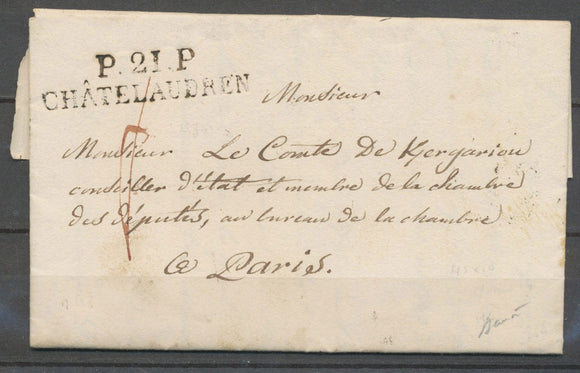 P.21.P
CHÂTELAUDREN
Monsieur
Monsieur Le Comte De Kergariou
conseiller d'état et membre de la chambre
des députés, au bureau de la chambre
a Paris.